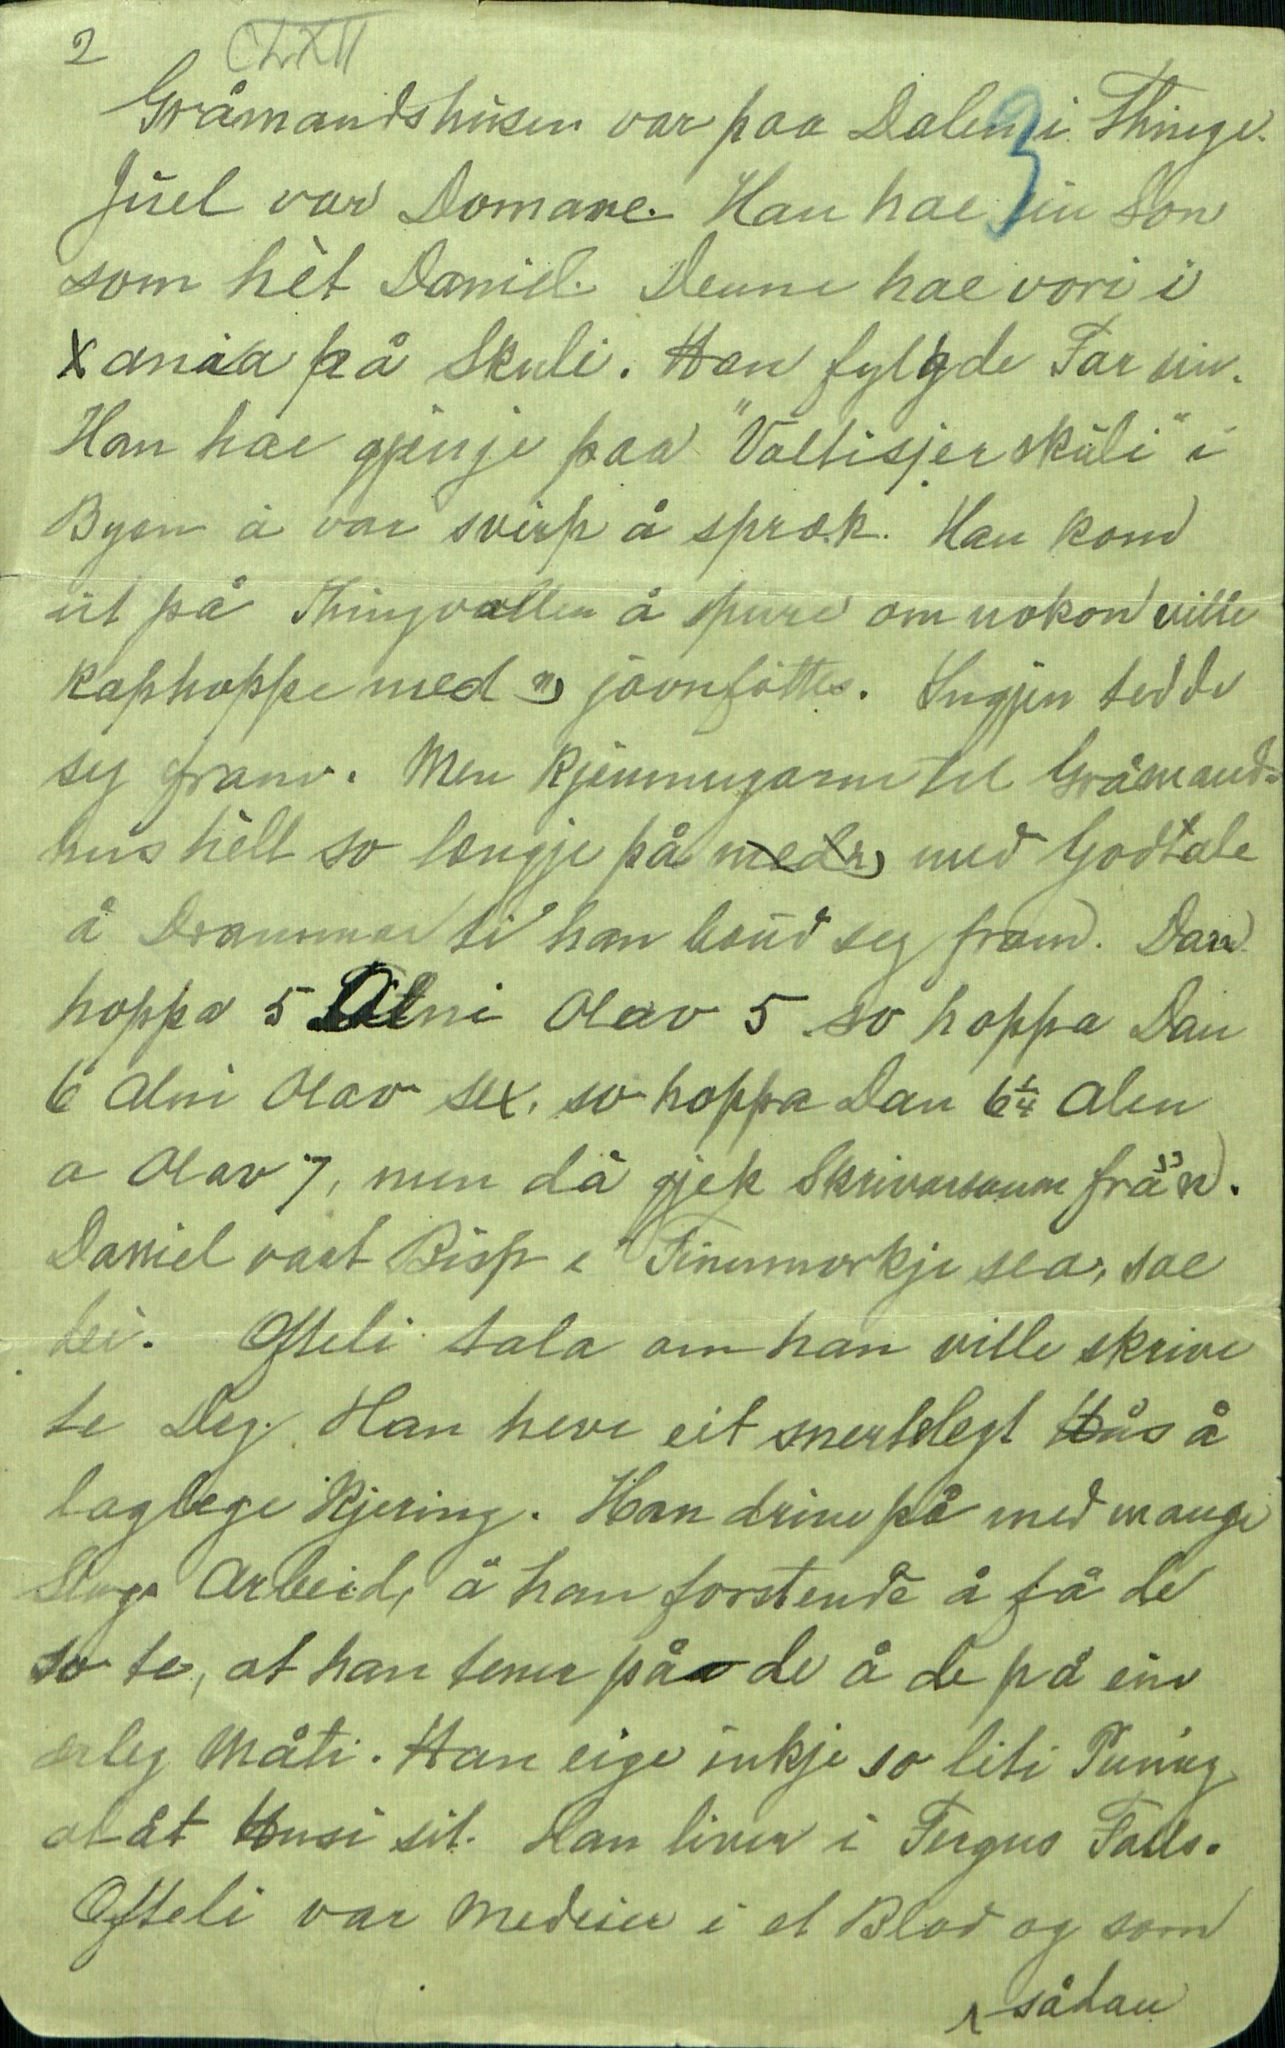 2 CLXII
3
Gråmandshusen var paa Dalen i Thinge.
Juel var Domare. Han hae ein Son
som hèt Daniel. Denne hae vori i
Xania på Skuli. Han fylgde Far sin.
Han hae gjenje paa "Valtisjer skuli" i
Byen å var svirp å spræk. Han kom
ut på Thingvollen å spure om nokon ville
kaphoppe med 'n javnføttes. Ingjen tedde
seg fram. Men Kjenningarne til Gråmands-
hus hèlt so lengje på med'n med Godtale
å Drammar ti han baud seg fram. Dan
hoppa 5 Alni Olav 5 so hoppa Dan
6 Alni Olav sex, so hoppa Dan 6¼ Alen
a Olav 7, men då gjek Skrivarsonen frå 'n.
Daniel vart Bisp i Finnmorkje sea, sae
dei. Ofteli tala om han ville skrive
te Deg. Han heve eit snertelegt Hus å
laglege Kjering. Han drive på med mange
Slags Arbeid, å han forstende å få de
so te, at han tener på de å de på ein
ærleg Måti. Han eige inkje so liti Pening
at åt Husi sit. Han liver i Fergus Falls.
Ofteli var Medeier i et Blad og som
sådan